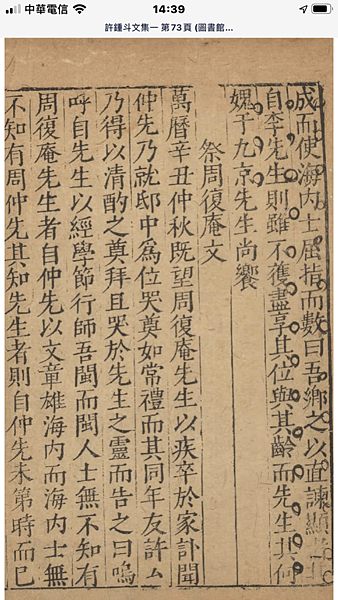 中華電信
14:39
許鍾斗文集一 第73頁 (圖書館...
成而使海内士屈指而數曰吾鄉之以直諫顯
自李先生則雖不獲盡享其位與其齡而先生其何
媿于九京先生尚饗
祭周復庵文
萬曆辛丑仲秋既望周復庵先生以疾卒於家訃聞
仲先乃就邸中為位哭奠如常禮而其同年友許ㄙ
乃得以清酌之奠拜且哭於先生之靈而告之曰嗚
呼自先生以經學節行師吾閩而閩人士無不知有
周復庵先生者自仲先以文章雄海内而海内士無
不知有周仲先其知先生者則自仲先未第時而已